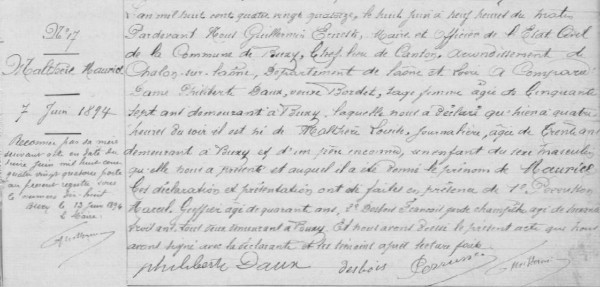 N° 17
Malthère Maurice
7 Juin 1894
Reconnu par sa mère
suivant acte en date du
Juin mil huit cent
quatre vingt quatorze porté
au présent registre sous
le numéro
Buxy le 13 Juin 1894
Le Maire
L'an mil huit cent quatre vingt quatorze, le huit Juin à neuf heures du matin
Pardevant Nous Guillermin Maire et Officier de l'Etat Civil
de la Commune de Buxy, Chef lieu de Canton, arrondissement de
Chalon-sur-Saône, Département de Saône et Loire a Comparu
Dame Philiberte Daux, veuve Bordet, sage femme âgée de Cinquante
sept ans demeurant à Buxy, laquelle nous a déclaré qu'hier à quatre
heures du soir il est né de Malthère Louise, journalière, âgée de trente ans
demeurant à Buxy et d'un père inconnu, un enfant du sexe masculin
qu'elle nous a présenté et auquel il a été donné le prénom de Maurice
Ces déclaration et présentation ont été faites en présence de 1°
Marcel Greffier âgé de quarante ans, 2° Desbois François garde champêtre âgé de
trois ans, tous deux demeurant à Buxy. Et nous avons dressé le présent acte que nous
avons signé avec la déclarante et les témoins après lecture faite.
philiberte Daux desbois